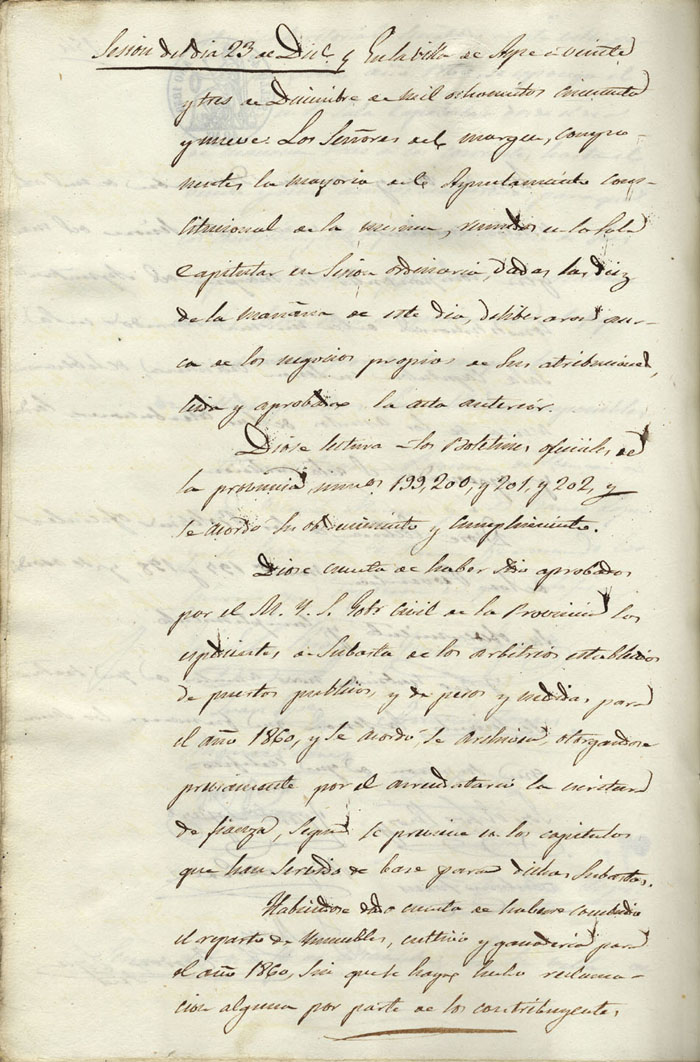 Sesion del dia 23 de Dic.e y En la villa de Aspe a veinte
y tres de Diciembre de mil ochocientos cincuenta
y nueve: Los Señores del margen, compo-
nentes la mayoria del Ayuntamiento cons-
titucional de la misma, reunidos en la Sala
Capitular en Sesion ordinaria, dadas las diez
de la mañana de este dia, deliberaron acer-
ca de los negocios propios de sus atribuciones,
leida y aprobada la acta anterior.
Diose lectura a los Boletines oficiales de
la provincia numos 199, 200, y 201, y 202, y
se acordó su obedecimiento y cumplimiento.
Diose cuenta de haber sido aprobados
por el M. Y. S. Gobr Civil de la Provincia los
espedientes de Subasta de los arbitrios establecidos
de puertos publicos, y de pesos y medidas para
el año 1860, y se acordó, se archiven, otorgandose
previamente por el arrendatario la escritura
de fianza, segun se previene en los capitulos
que han servido de base para dichas subastas.
Habiendose dado cuenta de haberse concluido
el reparto de Inmuebles, cultivo y ganaderia para
el año 1860, sin que se haya hecho reclama-
cion alguna por parte de los contribuyentes,